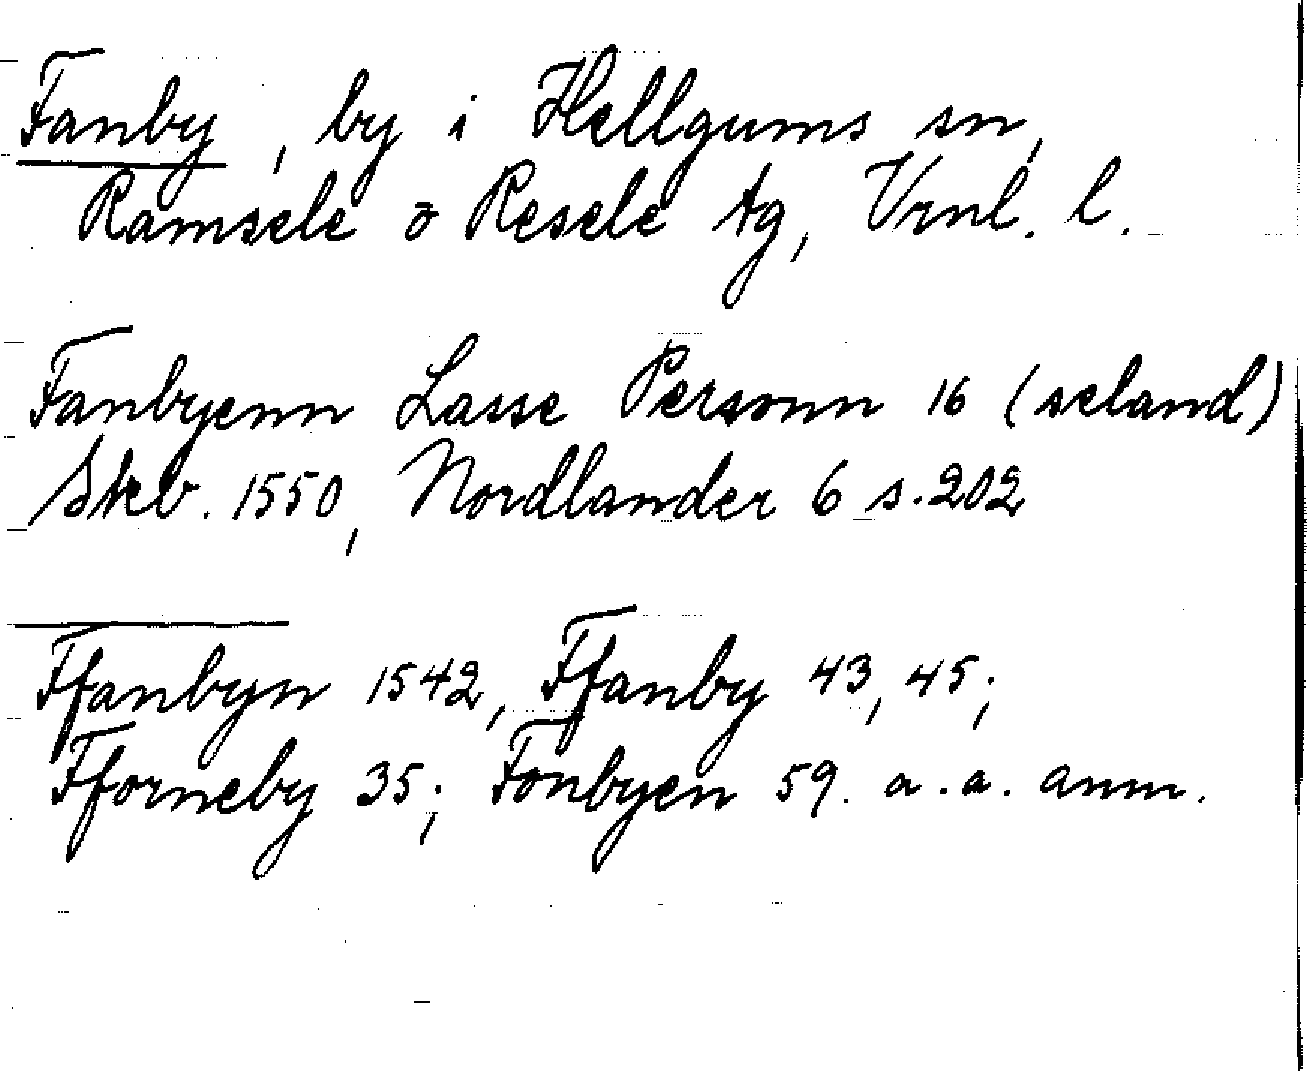 Fanby, by i Hellgums sn,
Ramsele o Resele tg, Vrnl. l.
Fanbyenn Lasse Personn 16 (seland)
Skb. 1550, Nordlander 6 s. 202
Ffanbyn 1542, Ffanby 43, 45;
Fforneby 35; Fonbyen 59. a.a. anm.